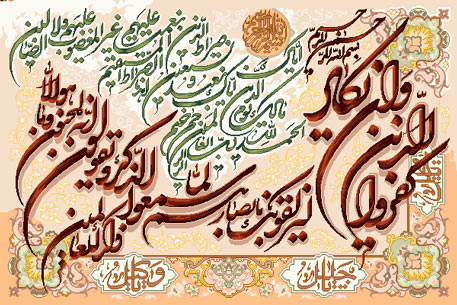 بسم الله الرحمن الرحیم
الحمد لله رب العالمین الرحمن الرحیم
مالک یوم الدین ایاک نعبد و ایاک نستعین
اهدنا الصراط المستقیم
صراط الذین انعمت علیهم غیر المغضوب علیهم ولا الضالین
وان یکاد الذین کفروا
لیزلقونک بابصارهم لما سمعوا
الذکر و یقولون انه لمجنون وما هو الا
ذکر للعالمین